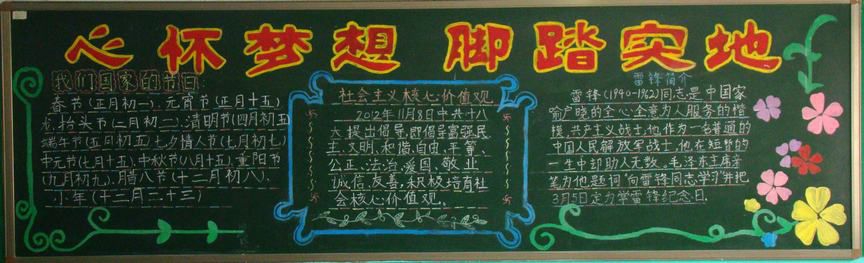 心怀梦想 脚踏实地
我们国家的节日:
春节(正月初一)、元宵节(正月十五)
龙抬头节(二月初二)、清明节(四月初五)
端午节(五月初五)七夕情人节(七月初七)
中元节(七月十五)、中秋节(八月十五)、重阳节
(九月初九)、腊八节(十二月初八)、
小年(十二月二十三)
社会主义核心价值观
2012年11月8日中共十八
大提出倡导,即倡导富强民
主、文明、和谐、自由、平等、
公正、法治、爱国、敬业
诚信、友善,积极培育社
会核心价值观。
雷锋简介
雷锋(1940-1962)同志,是中国家
喻户晓的全心全意为人服务的楷
模,共产主义战士,他作为一名普通的
中国人民解放军战士,他在短暂的
一生中却助人无数。毛泽东主席亲
笔为他题词“向雷锋同志学习”并把
3月5日定为学雷锋纪念日.